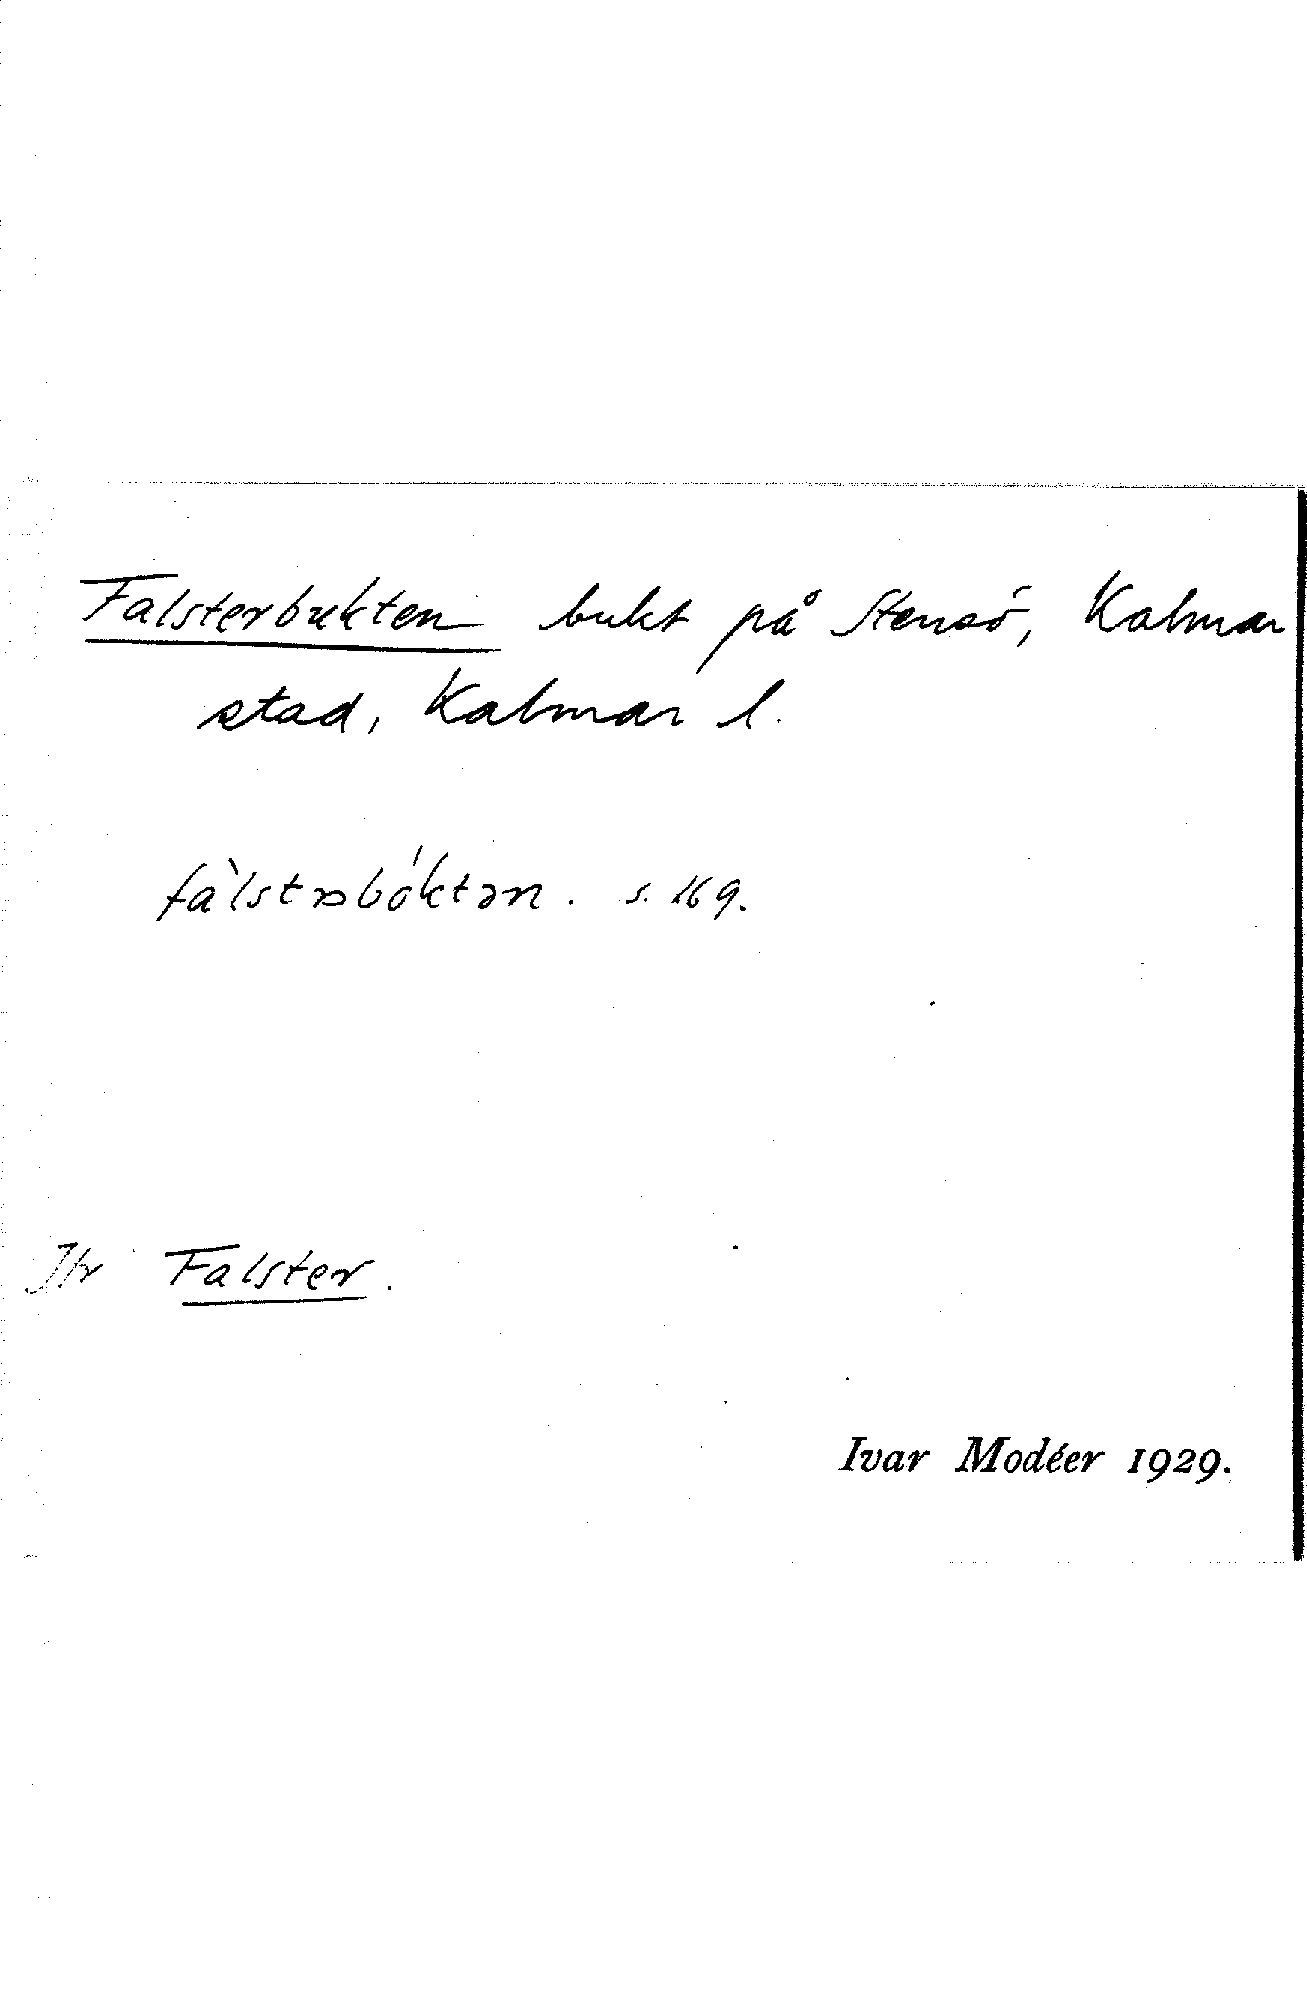 Falsterbukten bukt på Stensö, Kalmar
stad, Kalmar l.
fàlstəbóktən. s. 169.
Jfr Falster.
Ivar Modéer 1929.